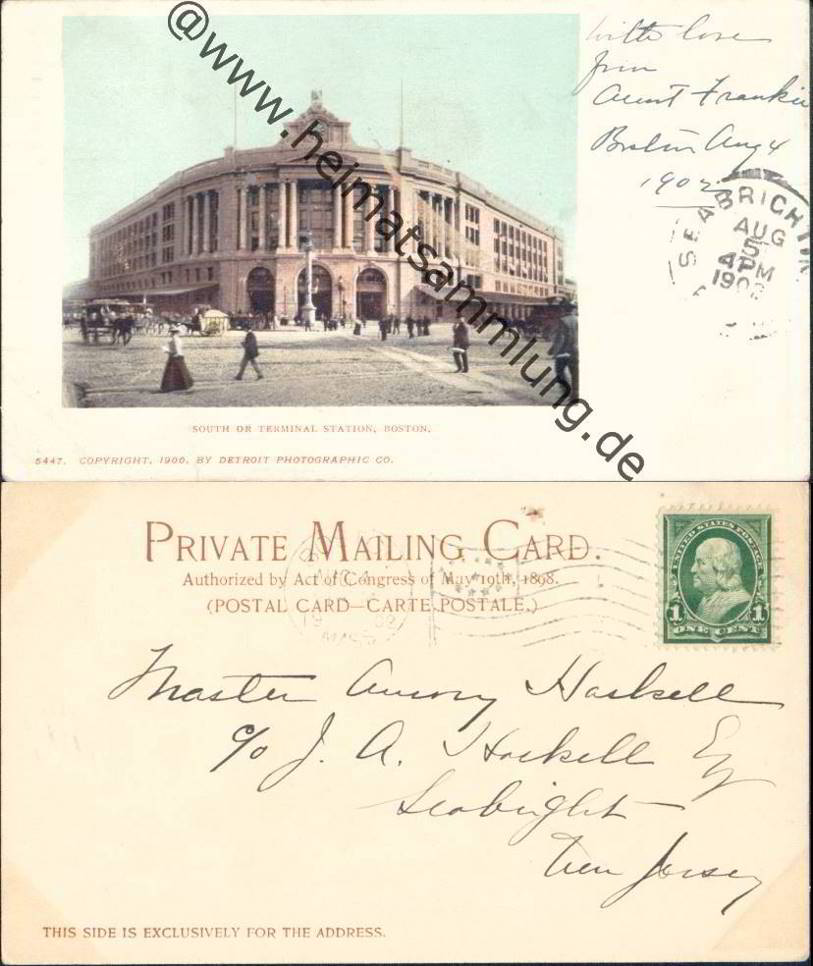 With love
from
Aunt Frankie
Boston Aug 4
1902
SEABRIGHT
AUG
5
4 PM
190
@www.heimatsammlung.de
SOUTH OR TERMINAL STATION, BOSTON.
5447. COPYRIGHT, 1900, BY DETROIT PHOTOGRAPHIC CO.
PRIVATE MAILING CARD.
Authorized by Act of Congress of May 19th, 1898.
(POSTAL CARD—CARTE POSTALE.)
UNITED STATES POSTAGE
1 1
ONE CENT
Master Amory Haskell
c/o J. A. Haskell Esq
Seabright
New Jersey
THIS SIDE IS EXCLUSIVELY FOR THE ADDRESS.